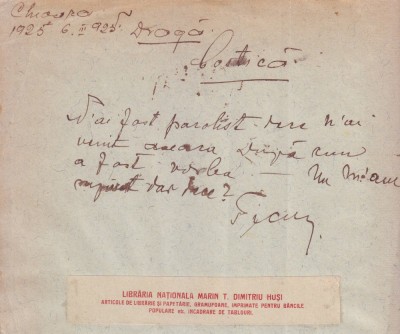 1925 6. II 925. Dragă
Costică
N'ai fost parolist. dece n'ai
venit aseara După cum
a fost vorba — Nu m'am
supărat dar dece?
LIBRĂRIA NAȚIONALA MARIN T. DIMITRIU HUȘI
ARTICOLE DE LIBRĂRIE ȘI PAPETĂRIE, GRAMOFOANE, IMPRIMATE PENTRU BĂNCILE
POPULARE ȘI ÎNCADRARE DE TABLOURI.